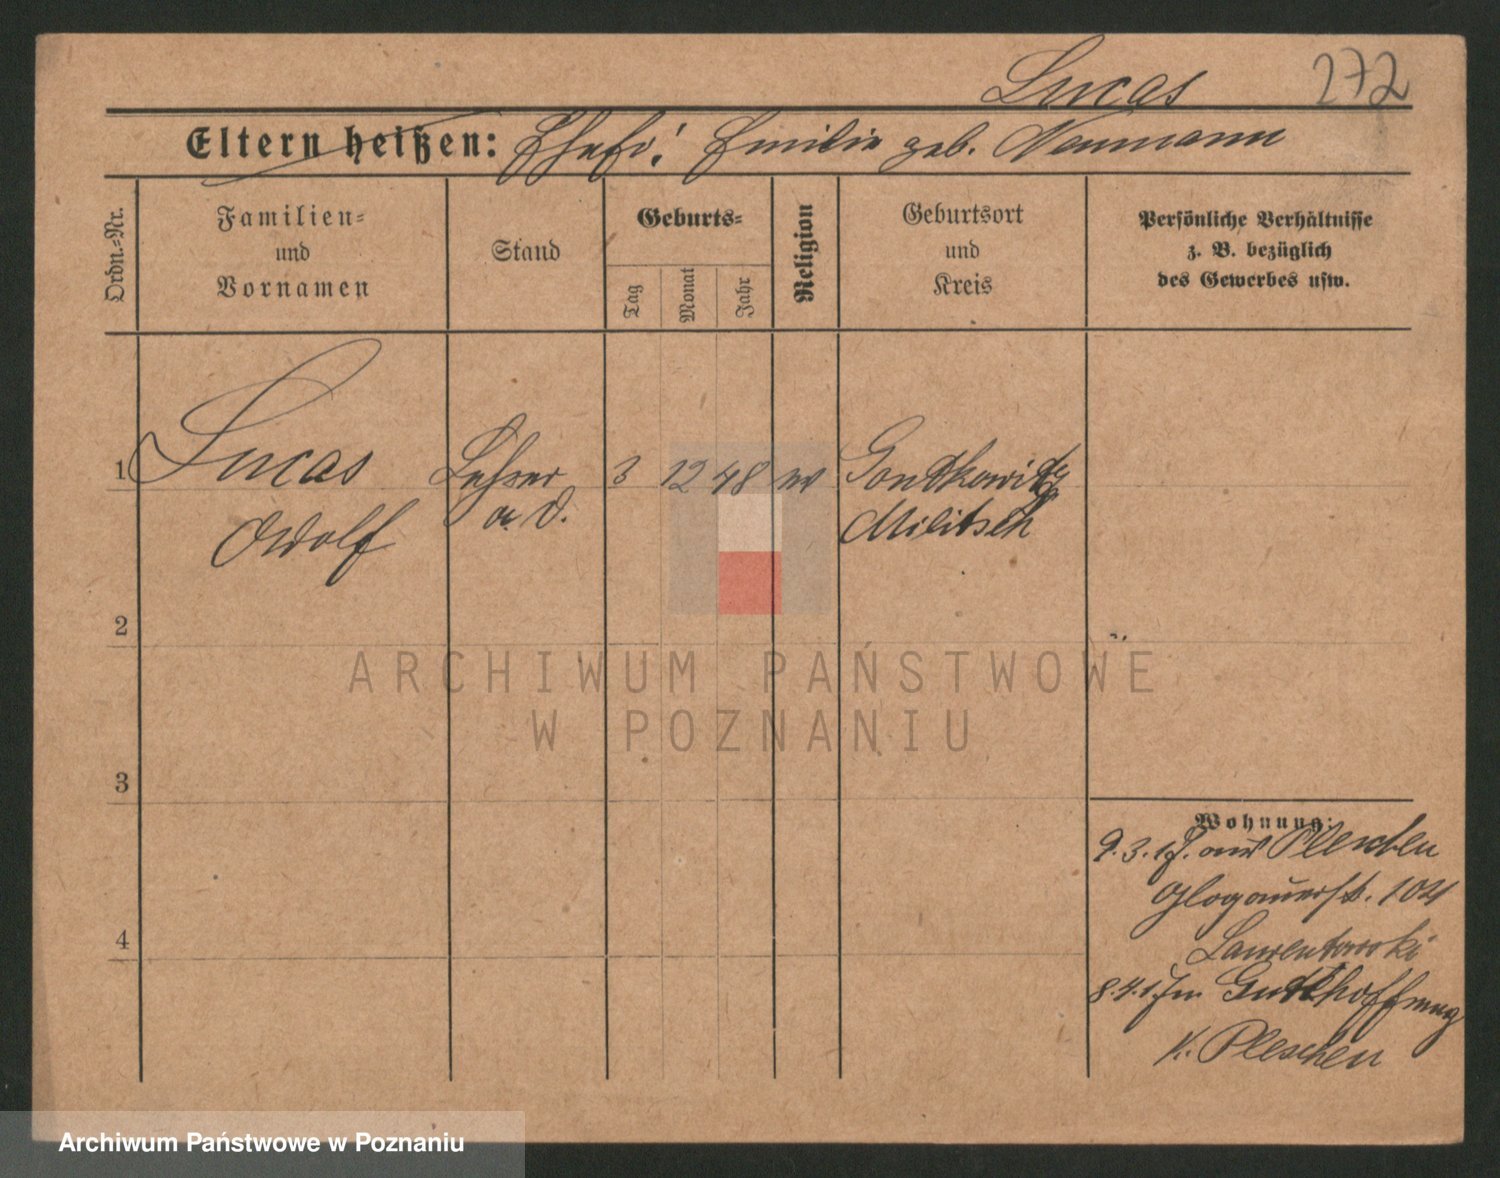 Lucas 272
Eltern heißen: Ehefr: Emilie geb. Neumann
Ordn.=Nr.
Familien=
und
Vornamen
Stand
Geburts=
Tag
Monat
Jahr
Religion
Geburtsort
und
Kreis
Persönliche Verhältnisse
z. B. bezüglich
des Gewerbes usw.
1 Lucas Lehrer 3 12 48 ev Gontkowitz
Adolf a. D. Militsch
2
3
4
Wohnung:
9.3.17. aus Pleschen
Glogauerstr. 104
Laurentowski
8.4.17 n. Gutehoffnung
K. Pleschen
ARCHIWUM PAŃSTWOWE
W POZNANIU
Archiwum Państwowe w Poznaniu